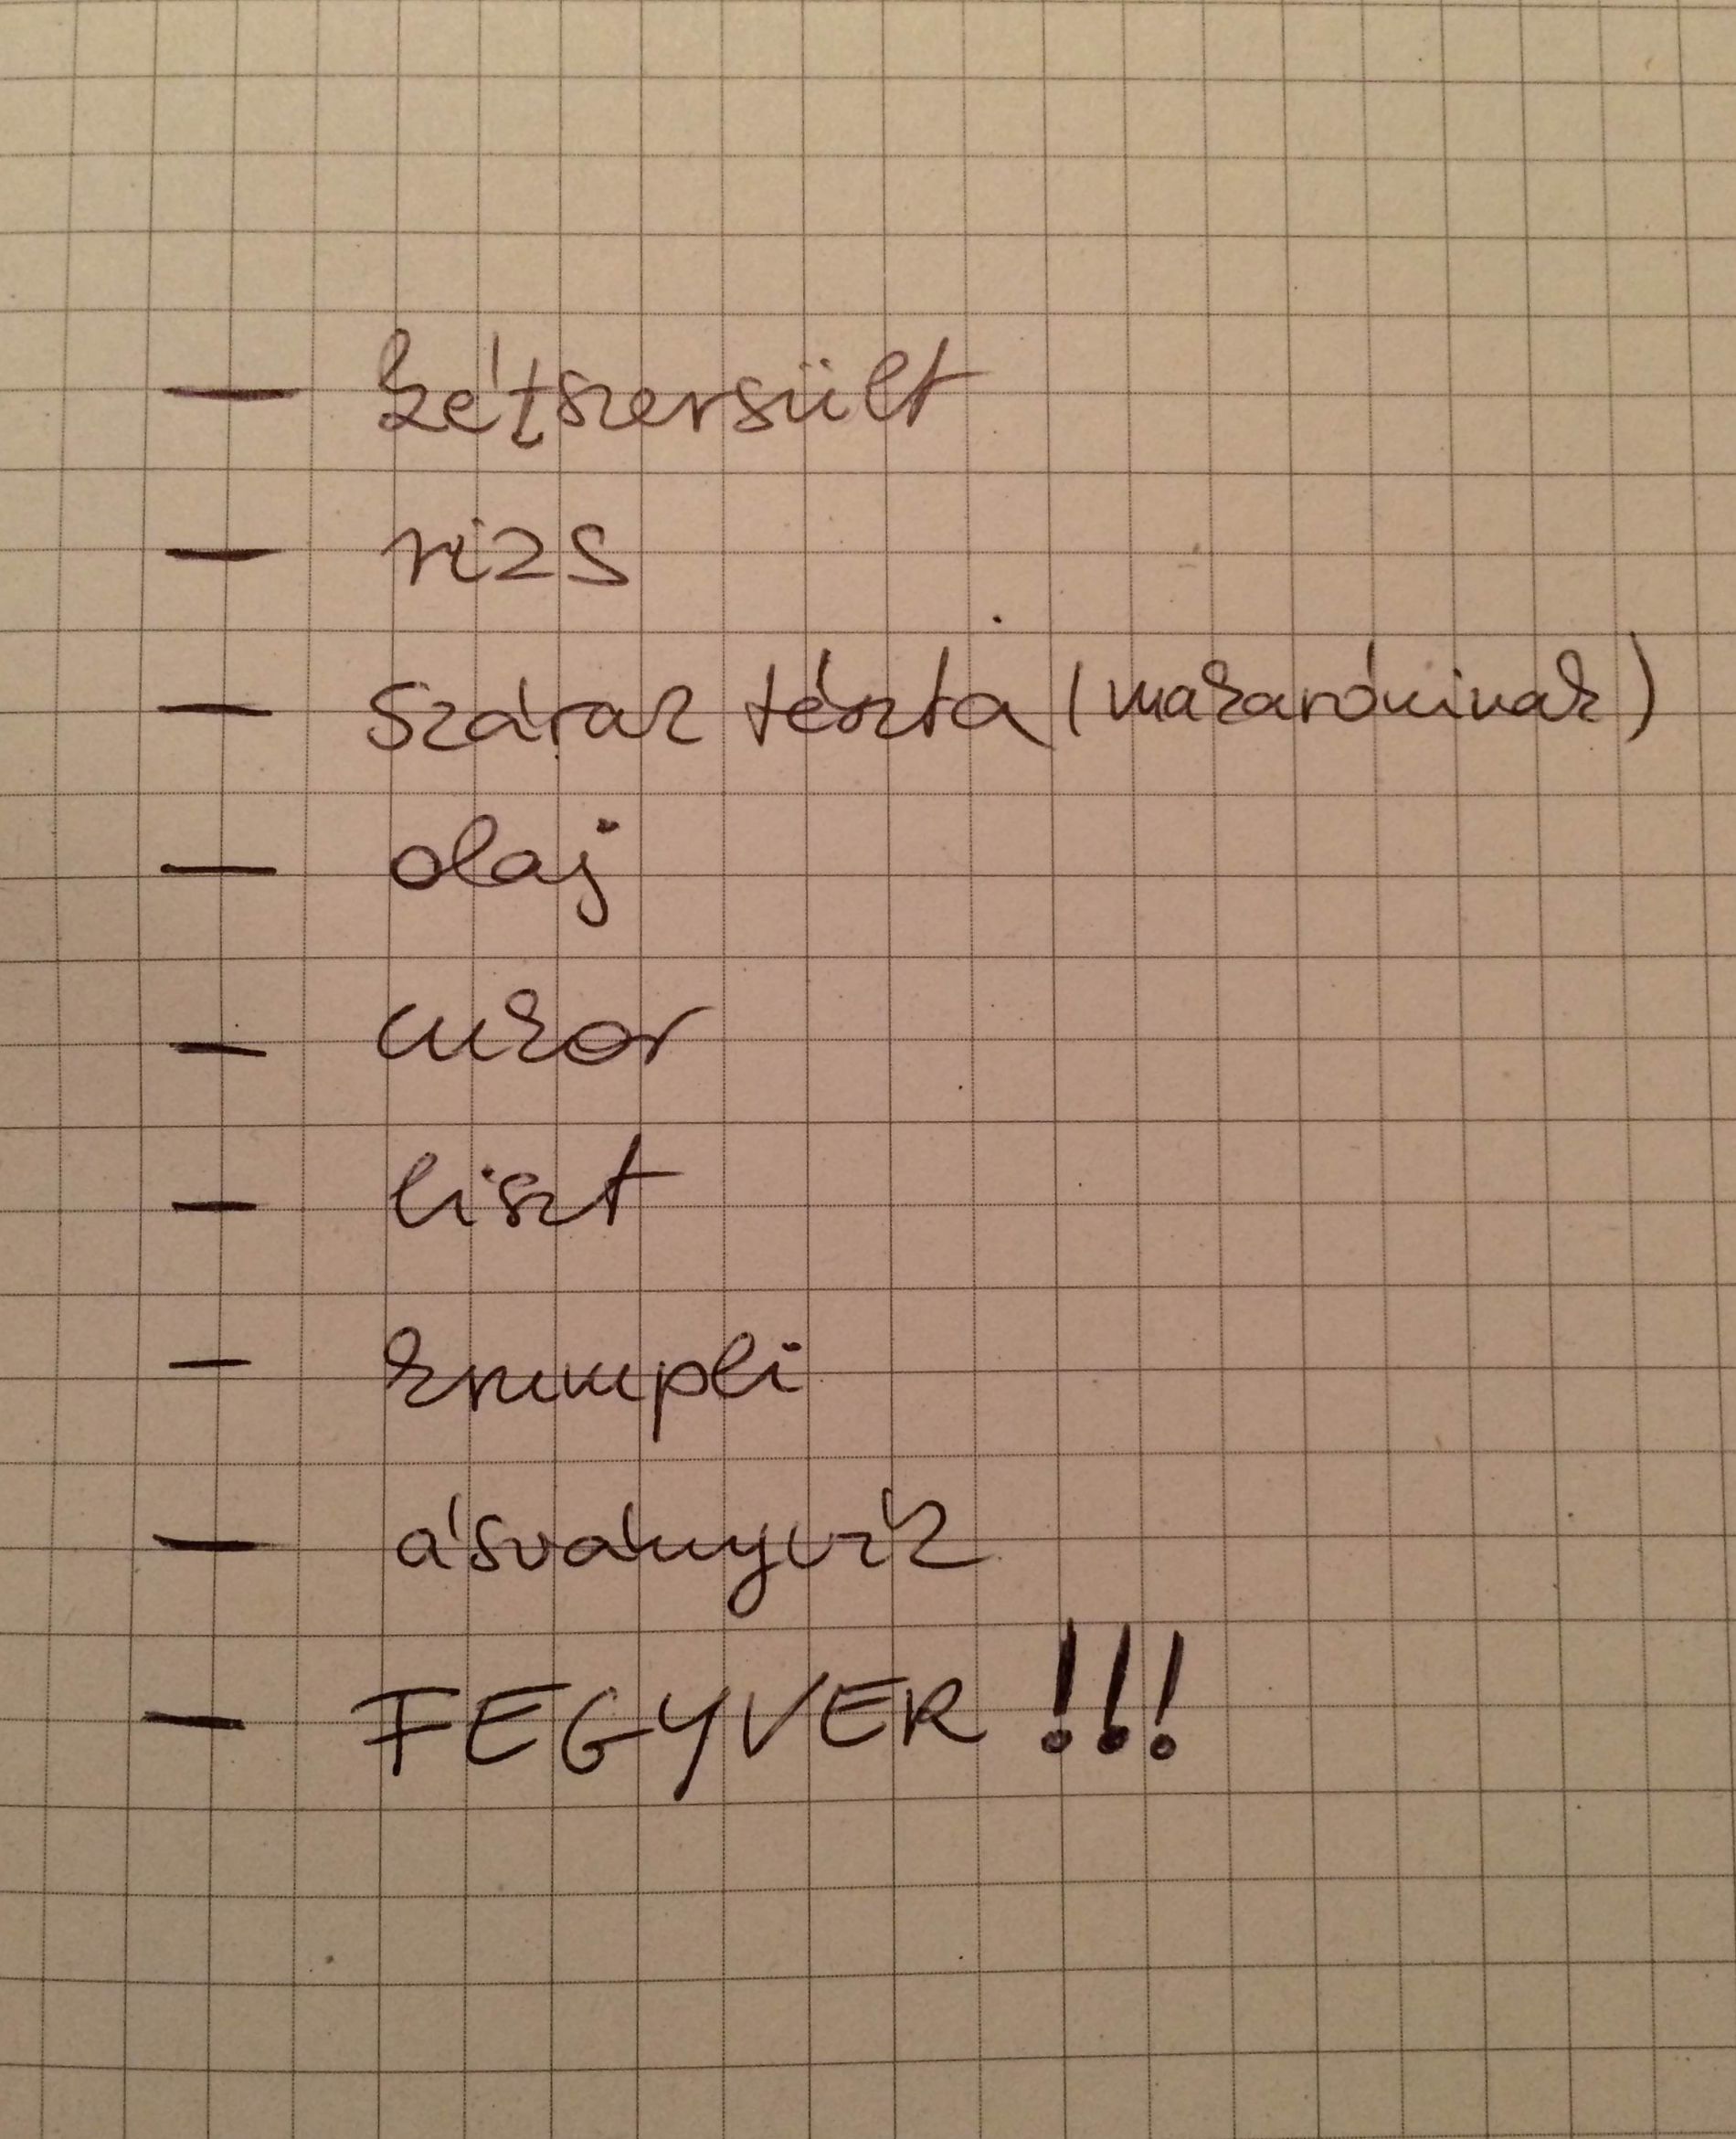 - kétszersült
- rizs
- száraz tészta (makaróninak)
- olaj
- cukor
- liszt
- krumpli
- ásványvíz
- FEGYVER!!!